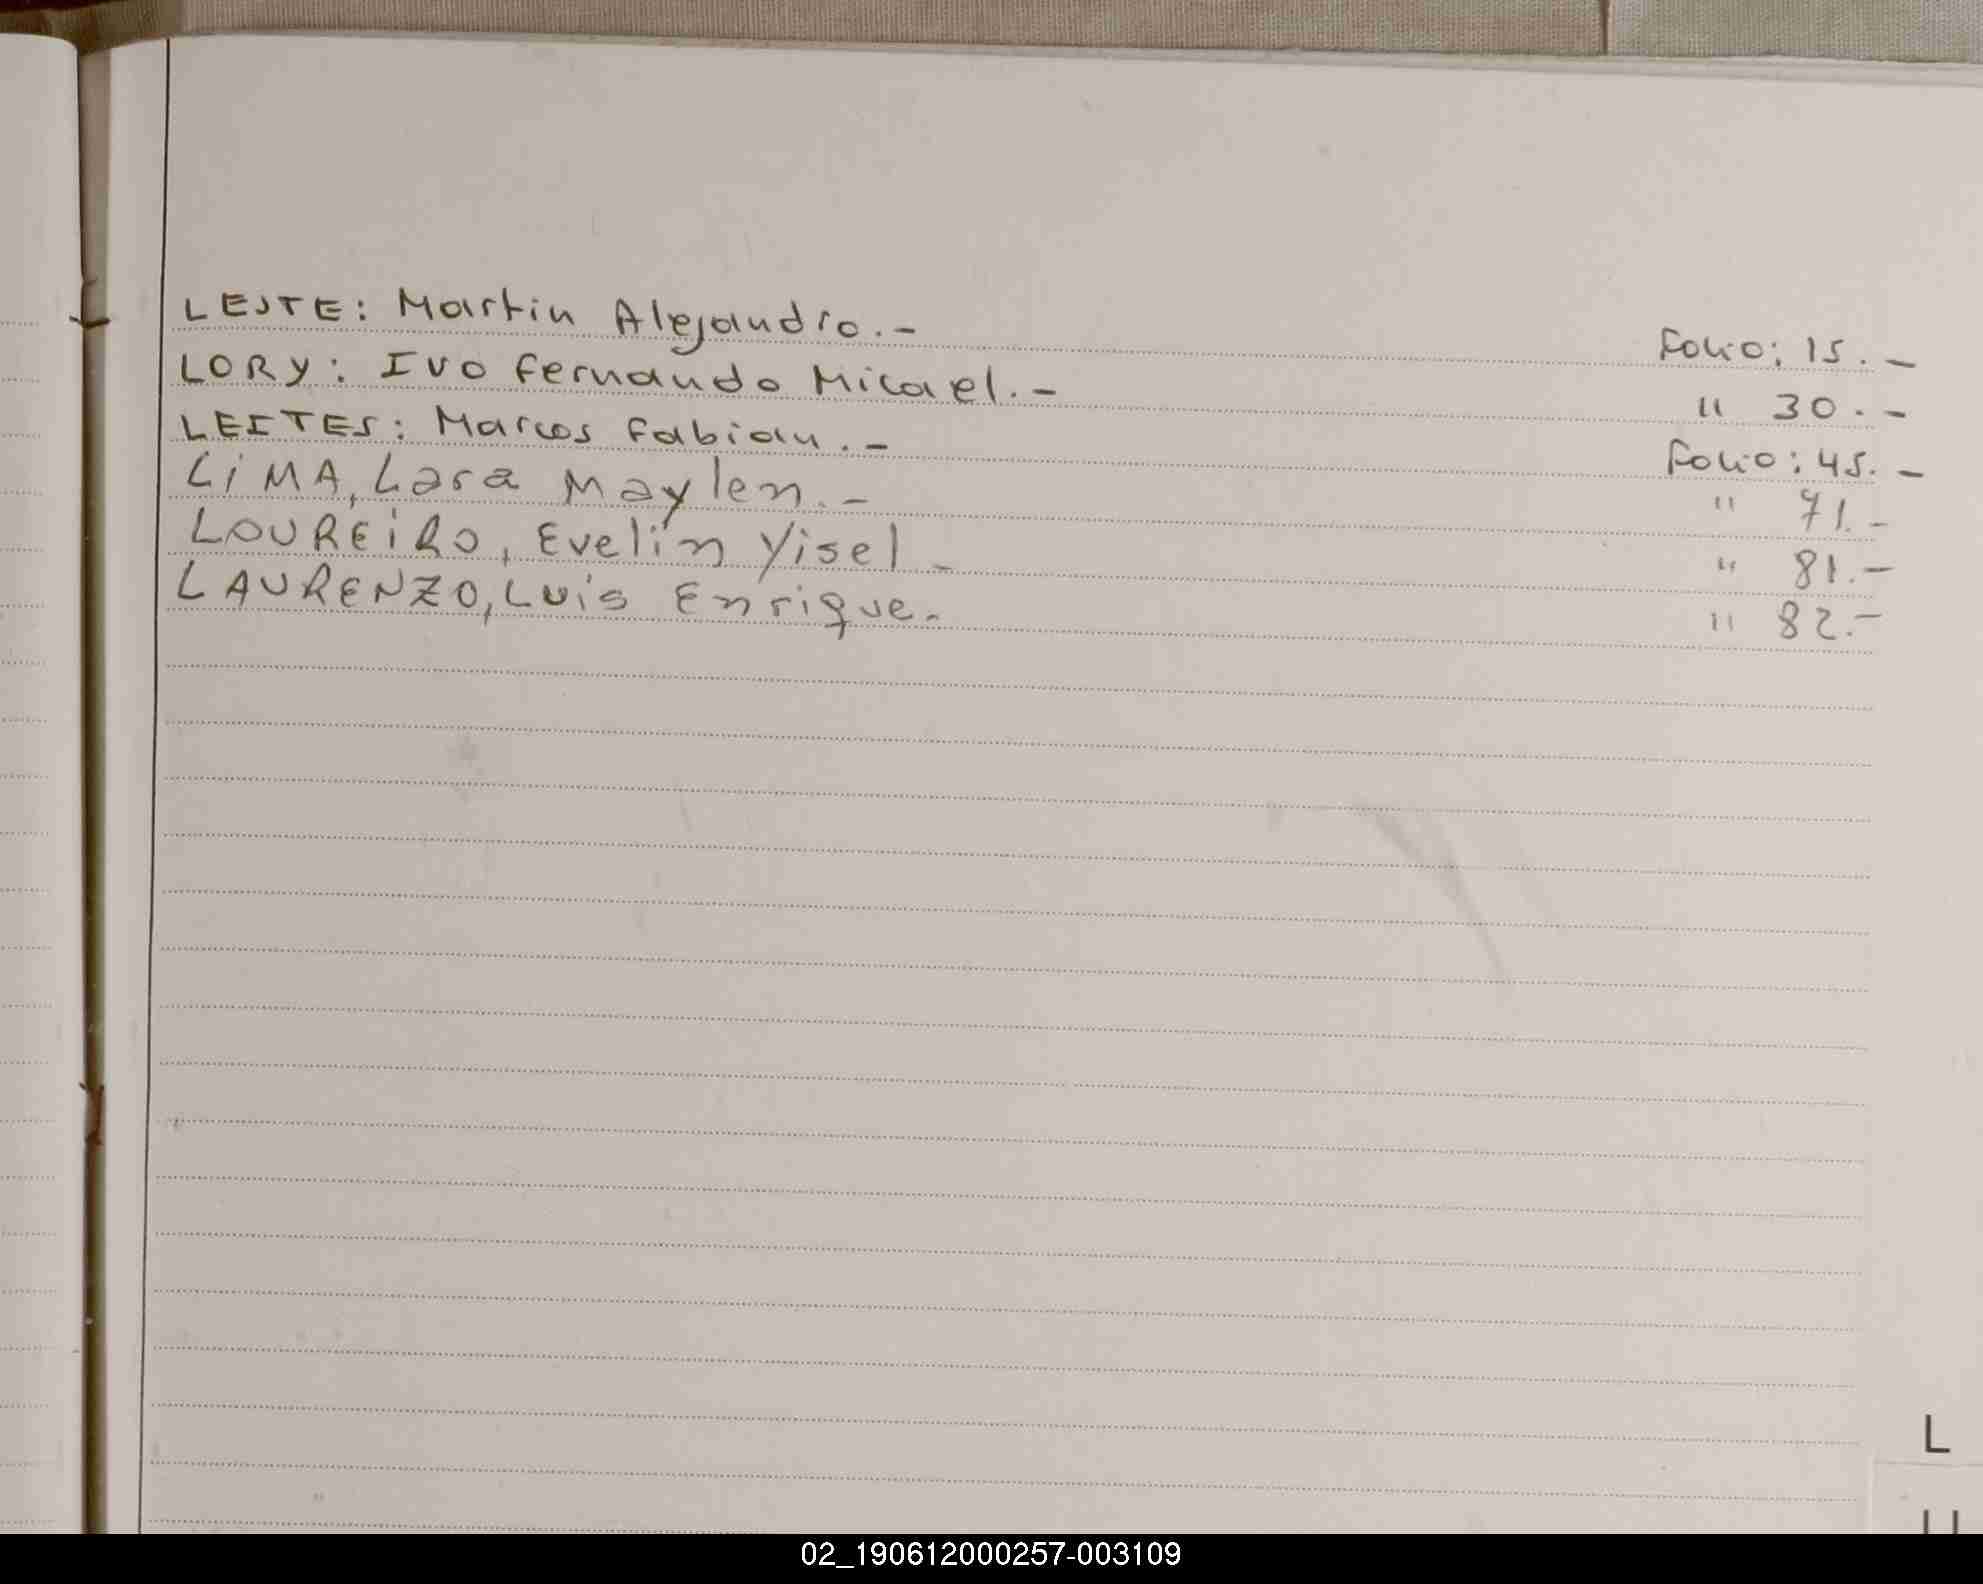 LESTE: Martin Alejandro.- Folio: 15.-
LORY: Ivo Fernando Micael.- " 30.-
LEITES: Marcos Fabian.- Folio: 45.-
LiMA, Lara Maylen.- " 71.-
LOUREiRO, Evelin Yisel.- " 81.-
LAURENZO, Luis Enrique.- " 82.-
L
02_190612000257-003109